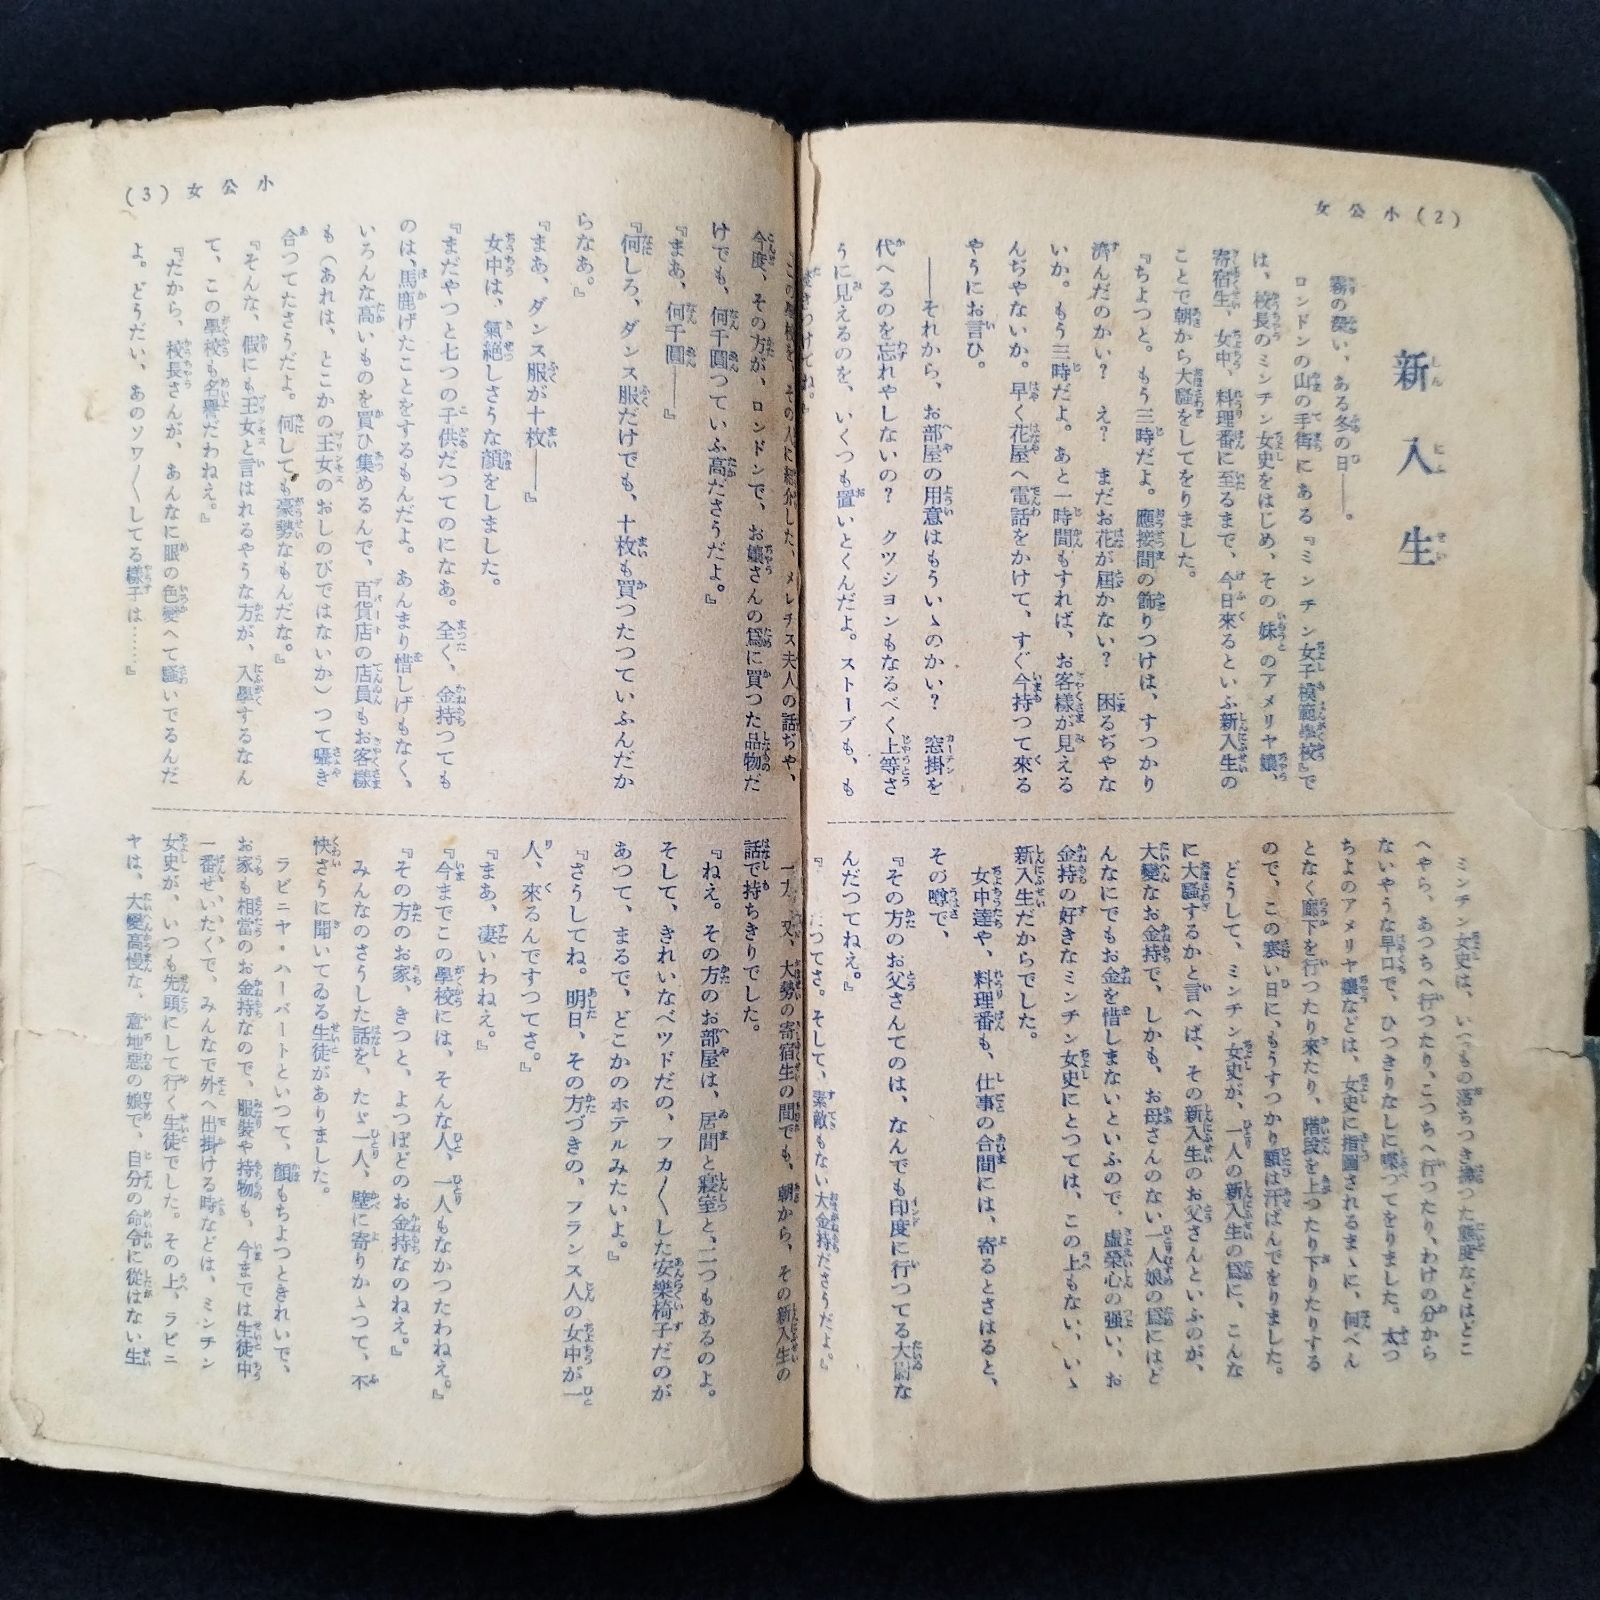 小公女(2)
新入生
霧の深い、ある冬の日――。
ロンドンの山の手街にある『ミンチン女子模範學校』で
は、校長のミンチン女史をはじめ、その妹のアメリヤ孃、
寄宿生、女中、料理番に至るまで、今日來るといふ新入生の
ことで朝から大騷をしてをりました。
『ちよつと。もう三時だよ。應接間の飾りつけは、すつかり
濟んだのかい? え? まだお花が屆かない? 困るぢやな
いか。もう三時だよ。あと一時間もすれば、お客樣が見える
んぢやないか。早く花屋へ電話をかけて、すぐ今持つて來る
やうにお言ひ。
――それから、お部屋の用意はもういゝのかい? 窓掛を
代へるのを忘れやしないの? クツシヨンもなるべく上等さ
うに見えるのを、いくつも置いとくんだよ。ストーブも、も
焚きつけてね。』
ミンチン女史は、いつもの落ちつき拂つた態度などはどこ
へやら、あつちへ行つたり、こつちへ行つたり、わけの分から
ないやうな早口で、ひつきりなしに喋つてをりました。太つ
ちよのアメリヤ孃などは、女史に指圖されるまゝに、何べん
となく廊下を行つたり來たり、階段を上つたり下りたりする
ので、この寒い日に、もうすつかり額は汗ばんでをりました。
どうして、ミンチン女史が、一人の新入生の爲に、こんな
に大騷するかと言へば、その新入生のお父さんといふのが、
大變なお金持で、しかも、お母さんのない一人娘の爲にはど
んなにでもお金を惜しまないといふので、虛榮心の强い、お
金持の好きなミンチン女史にとつては、この上もない、いゝ
新入生だからでした。
女中達や、料理番も、仕事の合間には、寄るとさはると、
その噂で、
『その方のお父さんてのは、なんでも印度に行つてる大尉な
んだつてねえ。』
つてさ。そして、素敵もない大金持ださうだよ。』
小公女(3)
この學校を、その人に紹介した、メレヂス夫人の話ぢや、
今度、その方が、ロンドンで、お孃さんの爲に買つた品物だ
けでも、何千圓つていふ高ださうだよ。』
『まあ、何千圓――』
『何しろ、ダンス服だけでも、十枚も買つたつていふんだか
らなあ。』
『まあ、ダンス服が十枚――』
女中は、氣絕しさうな顏をしました。
『まだやつと七つの子供だつてのになあ。全く、金持つても
のは、馬鹿げたことをするもんだよ。あんまり惜しげもなく、
いろんな高いものを買ひ集めるんで、百貨店の店員もお客樣
も(あれは、どこかの王女のおしのびではないか)つて囁き
合つてたさうだよ。何しても豪勢なもんだな。』
『そんな、假にも王女と言はれるやうな方が、入學するなん
て、この學校も名譽だわねえ。』
『だから、校長さんが、あんなに眼の色變へて騷いでるんだ
よ。どうだい、あのソワ〳〵してる樣子は……』
一方、又、大勢の寄宿生の間でも、朝から、その新入生の
話で持ちきりでした。
『ねえ。その方のお部屋は、居間と寢室と、二つもあるのよ。
そして、きれいなベツドだの、フカ〳〵した安樂椅子だのが
あつて、まるで、どこかのホテルみたいよ。』
『さうしてね。明日、その方づきの、フランス人の女中が一
人、來るんですつてさ。』
『まあ、凄いわねえ。』
『今までこの學校には、そんな人、一人もなかつたわねえ。』
『その方のお家、きつと、よつぽどのお金持なのねえ。』
みんなのさうした話を、たゞ一人、壁に寄りかゝつて、不
快さうに聞いてゐる生徒がありました。
ラビニヤ・ハーバートといつて、顏もちよつときれいで、
お家も相當のお金持なので、服裝や持物も、今までは生徒中
一番ぜいたくで、みんなで外へ出掛ける時などは、ミンチン
女史が、いつも先頭にして行く生徒でした。その上、ラビニ
ヤは、大變高慢な、意地惡の娘で、自分の命令に從はない生